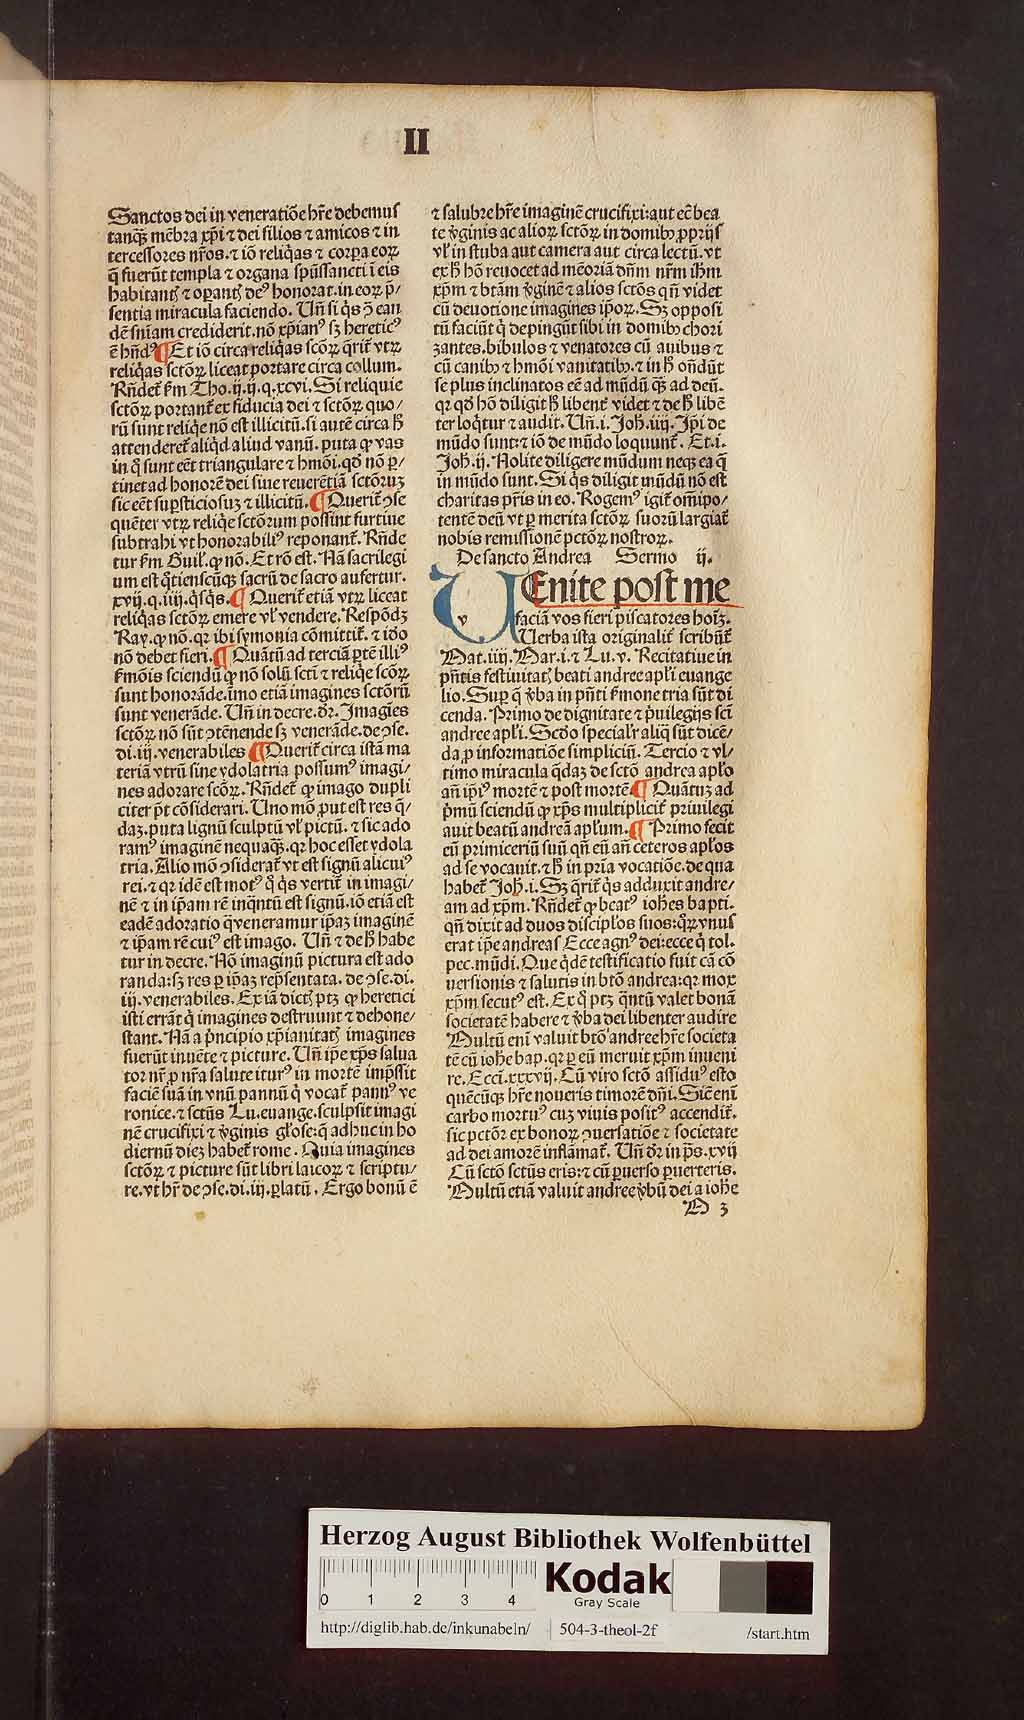 II
Sanctos dei in veneratiōe hr̄e debemus
tanqꝫ mēbra xp̄i ⁊ dei filios ⁊ amicos ⁊ in
tercessores nr̄os.⁊ iō reliq̄as ⁊ corꝑa eoꝝ
q̄ fuerūt templa ⁊ organa spūssancti ī eis
habitantꝭ ⁊ oꝑantꝭ deꝰ honorat.in eoꝝ p̄/
sentia miracula faciendo. Vn̄ si q̇s ꝯ̄ ean
dē sn̄iam crediderit.nō xp̄ianꝰ sꝫ hereticꝰ
ē hn̄dꝰ ¶ Et iō circa reliq̄as sc̄oꝝ q̄rit̄ vtꝝ
reliq̄as sctōꝝ liceat portare circa collum.
Rn̄det̄ ẜm Tho.ij.ij.q.xcvi. Si reliquie
sctōꝝ portant̄ ex fiducia dei ⁊ sctōꝝ quo/
rū sunt reliq̄e nō est illicitū.si autē circa h̄
attenderet̄ aliq̇d aliud vanū. puta ꝙ vas
in q̄ sunt eēt triangulare ⁊ hmōi.qd̄ nō ꝑ/
tinet ad honorē dei siue reuerētiā sctōruꝫ
sic eēt suꝑsticiosuꝫ ⁊ illicitū. ¶ Querit̄ ꝯse
quēter vtꝝ reliq̄e sctōrum possint furtiue
subtrahi vt honorabiliꝰ reponant̄. Rn̄de
tur ẜm Guil.ꝙ nō. Et rō est. Nā sacrilegi
um est q̄tienscūqꝫ sacrū de sacro aufertur.
xvij.q.iiij.q̇sq̇s. ¶ Querit̄ etiā vtꝝ liceat
reliq̄as sctōꝝ emere vl̓ vendere. Respōdꝫ
Ray.ꝙ nō.qꝛ ibi symonia cōmittit̄. ⁊ iō
nō debet fieri. ¶ Quātū ad terciā ꝑtē illiꝰ
ẜmōis sciendū ꝙ nō solū scti ⁊ reliq̄e sc̄oꝝ
sunt honorāde.īmo etiā imagines sctōrū
sunt venerāde. Vn̄ in decre.dr̄. Imagīes
sctōꝝ nō sūt ꝯtēnende sꝫ venerāde.de ꝯse.
di.iij.venerabiles ¶ Querit̄ circa istā ma
teriā vtrū sine ydolatria possumꝰ imagi/
nes adorare sc̄oꝝ. Rn̄det̄ ꝙ imago dupli
citer pt̄ cōsiderari. Uno mō ꝓut est res q̄/
daꝫ.puta lignū sculptū vl̓ pictū. ⁊ sic ado
ramꝰ imaginē nequaqꝫ̄.qꝛ hoc esset ydola
tria. Alio mō ꝯsiderat̄ vt est signū alicuiꝰ
rei.⁊ qꝛ idē est motꝰ q̇ q̇s vertit̄ in imagi/
nē ⁊ in ip̄am rē inq̄ntū est signū.iō etiā est
eadē adoratio q̄ veneramur ip̄aꝫ imaginē
⁊ ip̄am rē cuiꝰ est imago. Vn̄ ⁊ de h̄ habe
tur in decre. Nō imaginū pictura est ado
randa:sꝫ res ꝑ ip̄aꝫ rep̄sentata. de ꝯse.di.
iij.venerabiles. Ex iā dictꝭ ptꝫ ꝙ heretici
isti errāt q̇ imagines destruunt ⁊ dehone/
stant. Nā a p̄ncipio xp̄ianitatꝭ imagines
fuerūt inuēte ⁊ picture. Vn̄ ip̄e xp̄s salua
tor nr̄ ꝓ nr̄a salute iturꝰ in mortē imp̄ssit
faciē suā in vnū pannū q̇ vocat̄ pannꝰ ve
ronice.⁊ sctūs Lu.euange.sculpsit imagi
nē crucifixi ⁊ v̓ginis gl̓ose:q̄ adhuc in ho
diernū dieꝫ habet̄ rome. Quia imagines
sctōꝝ ⁊ picture sūt libri laicoꝝ ⁊ scriptu/
re.vt hr̄ de ꝯse.di.iij.ꝑlatū. Ergo bonū ē
⁊ salubre hr̄e imaginē crucifixi:aut eē bea
te v̓ginis ac alioꝝ sctōꝝ in domibꝫ ꝓprijs
vl̓ in stuba aut camera aut circa lectū.vt
ex h̄ hō reuocet ad mēoriā dn̄m nr̄m ih̄m
xp̄m ⁊ btām v̓ginē ⁊ alios sctōs qn̄ videt
cū deuotione imagines ip̄oꝝ. Sꝫ opposi
tū faciūt q̇ depingūt sibi in domibꝫ chori
zantes.bibulos ⁊ venatores cū auibus ⁊
cū canibꝫ ⁊ hmōi vanitatibꝫ.⁊ in h̄ ondūt
se plus inclinatos eē ad mūdū qꝫ̄ ad deū.
qꝛ qd̄ hō diligit h̄ libent̄ videt ⁊ de h̄ libē
ter loq̇tur ⁊ audit. Vn̄.i.Joh̄.iiij. Ip̄i de
mūdo sunt:⁊ iō de mūdo loquunt̄. Et.i.
Joh̄.ij. Nolite diligere mūdum neqꝫ ea q̄
in mūdo sunt. Si q̇s diligit mūdū nō est
charitas pr̄is in eo. Rogemꝰ igit̄ om̄ipo/
tentē deū vt ꝑ merita sctōꝝ suorū largiat̄
nobis remissionē pctōꝝ nostroꝝ.
De sancto Andrea Sermo ij.
v
UEnite post me
faciā vos fieri piscatores hoīꝫ.
Uerba ista originalit̄ scribūt̄
Mat.iiij. Mar.i.⁊ Lu.v. Recitatiue in
pn̄tis festiuitatꝭ beati andree apl̓i euange
lio. Sup q̄ v̓ba in pn̄ti ẜmone tria sūt di
cenda. Primo de dignitate ⁊ p̓uilegijs scī
andree apl̓i. Scdo special̓r aliq̄ sūt dicē/
da ꝓ informatiōe simpliciū. Tercio ⁊ vl/
timo miracula q̄daꝫ de sctō andrea apl̓o
an̄ ip̄iꝰ mortē ⁊ post mortē ¶ Quātuꝫ ad
p̓mū sciendū ꝙ xp̄s multiplicit̄ priuilegi
auit beatū andreā apl̓um. ¶ Primo fecit
eū primiceriū suū qn̄ eū an̄ ceteros apl̓os
ad se vocauit.⁊ h̄ in pria vocatiōe.de qua
habet̄ Joh̄.i. Sꝫ q̄rit̄ q̇s adduxit andre/
am ad xp̄m. Rn̄det̄ ꝙ beatꝰ ioh̄es bapti.
qn̄ dixit ad duos discipl̓os suos:q̄ꝝ vnus
erat ip̄e andreas Ecce agnꝰ dei:ecce q̇ tol.
pec.mūdi. Que q̇dē testificatio fuit cā cō
uersionis ⁊ salutis in btō andrea:qꝛ mox
xp̄m secutꝰ est. Ex q̇ ptꝫ q̄ntū valet bonā
societatē habere ⁊ v̓ba dei libenter audire
Multū eni valuit btō andree hr̄e societa
tē cū ioh̄e bap.qꝛ ꝑ eū meruit xp̄m inueni
re. Ecci.xxxvij. Cū viro sctō assiduꝰ esto
quēcūqꝫ hr̄e noueris timorē dn̄i. Sic eni
carbo mortuꝰ cuꝫ viuis positꝰ accendit̄.
sic pctōr ex bonoꝝ ꝯuersatiōe ⁊ societate
ad dei amorē inflāmat̄. Vn̄ dr̄ in ps̄.xvij
Cū sctō sctūs eris:⁊ cū ꝑuerso ꝑuerteris.
Multū etiā valuit andree v̓bū dei a ioh̄e
A 3
Herzog August Bibliothek Wolfenbüttel
0 1 2 3 4
Kodak
Gray Scale
http://diglib.hab.de/inkunabeln/ 504-3-theol-2f /start.htm